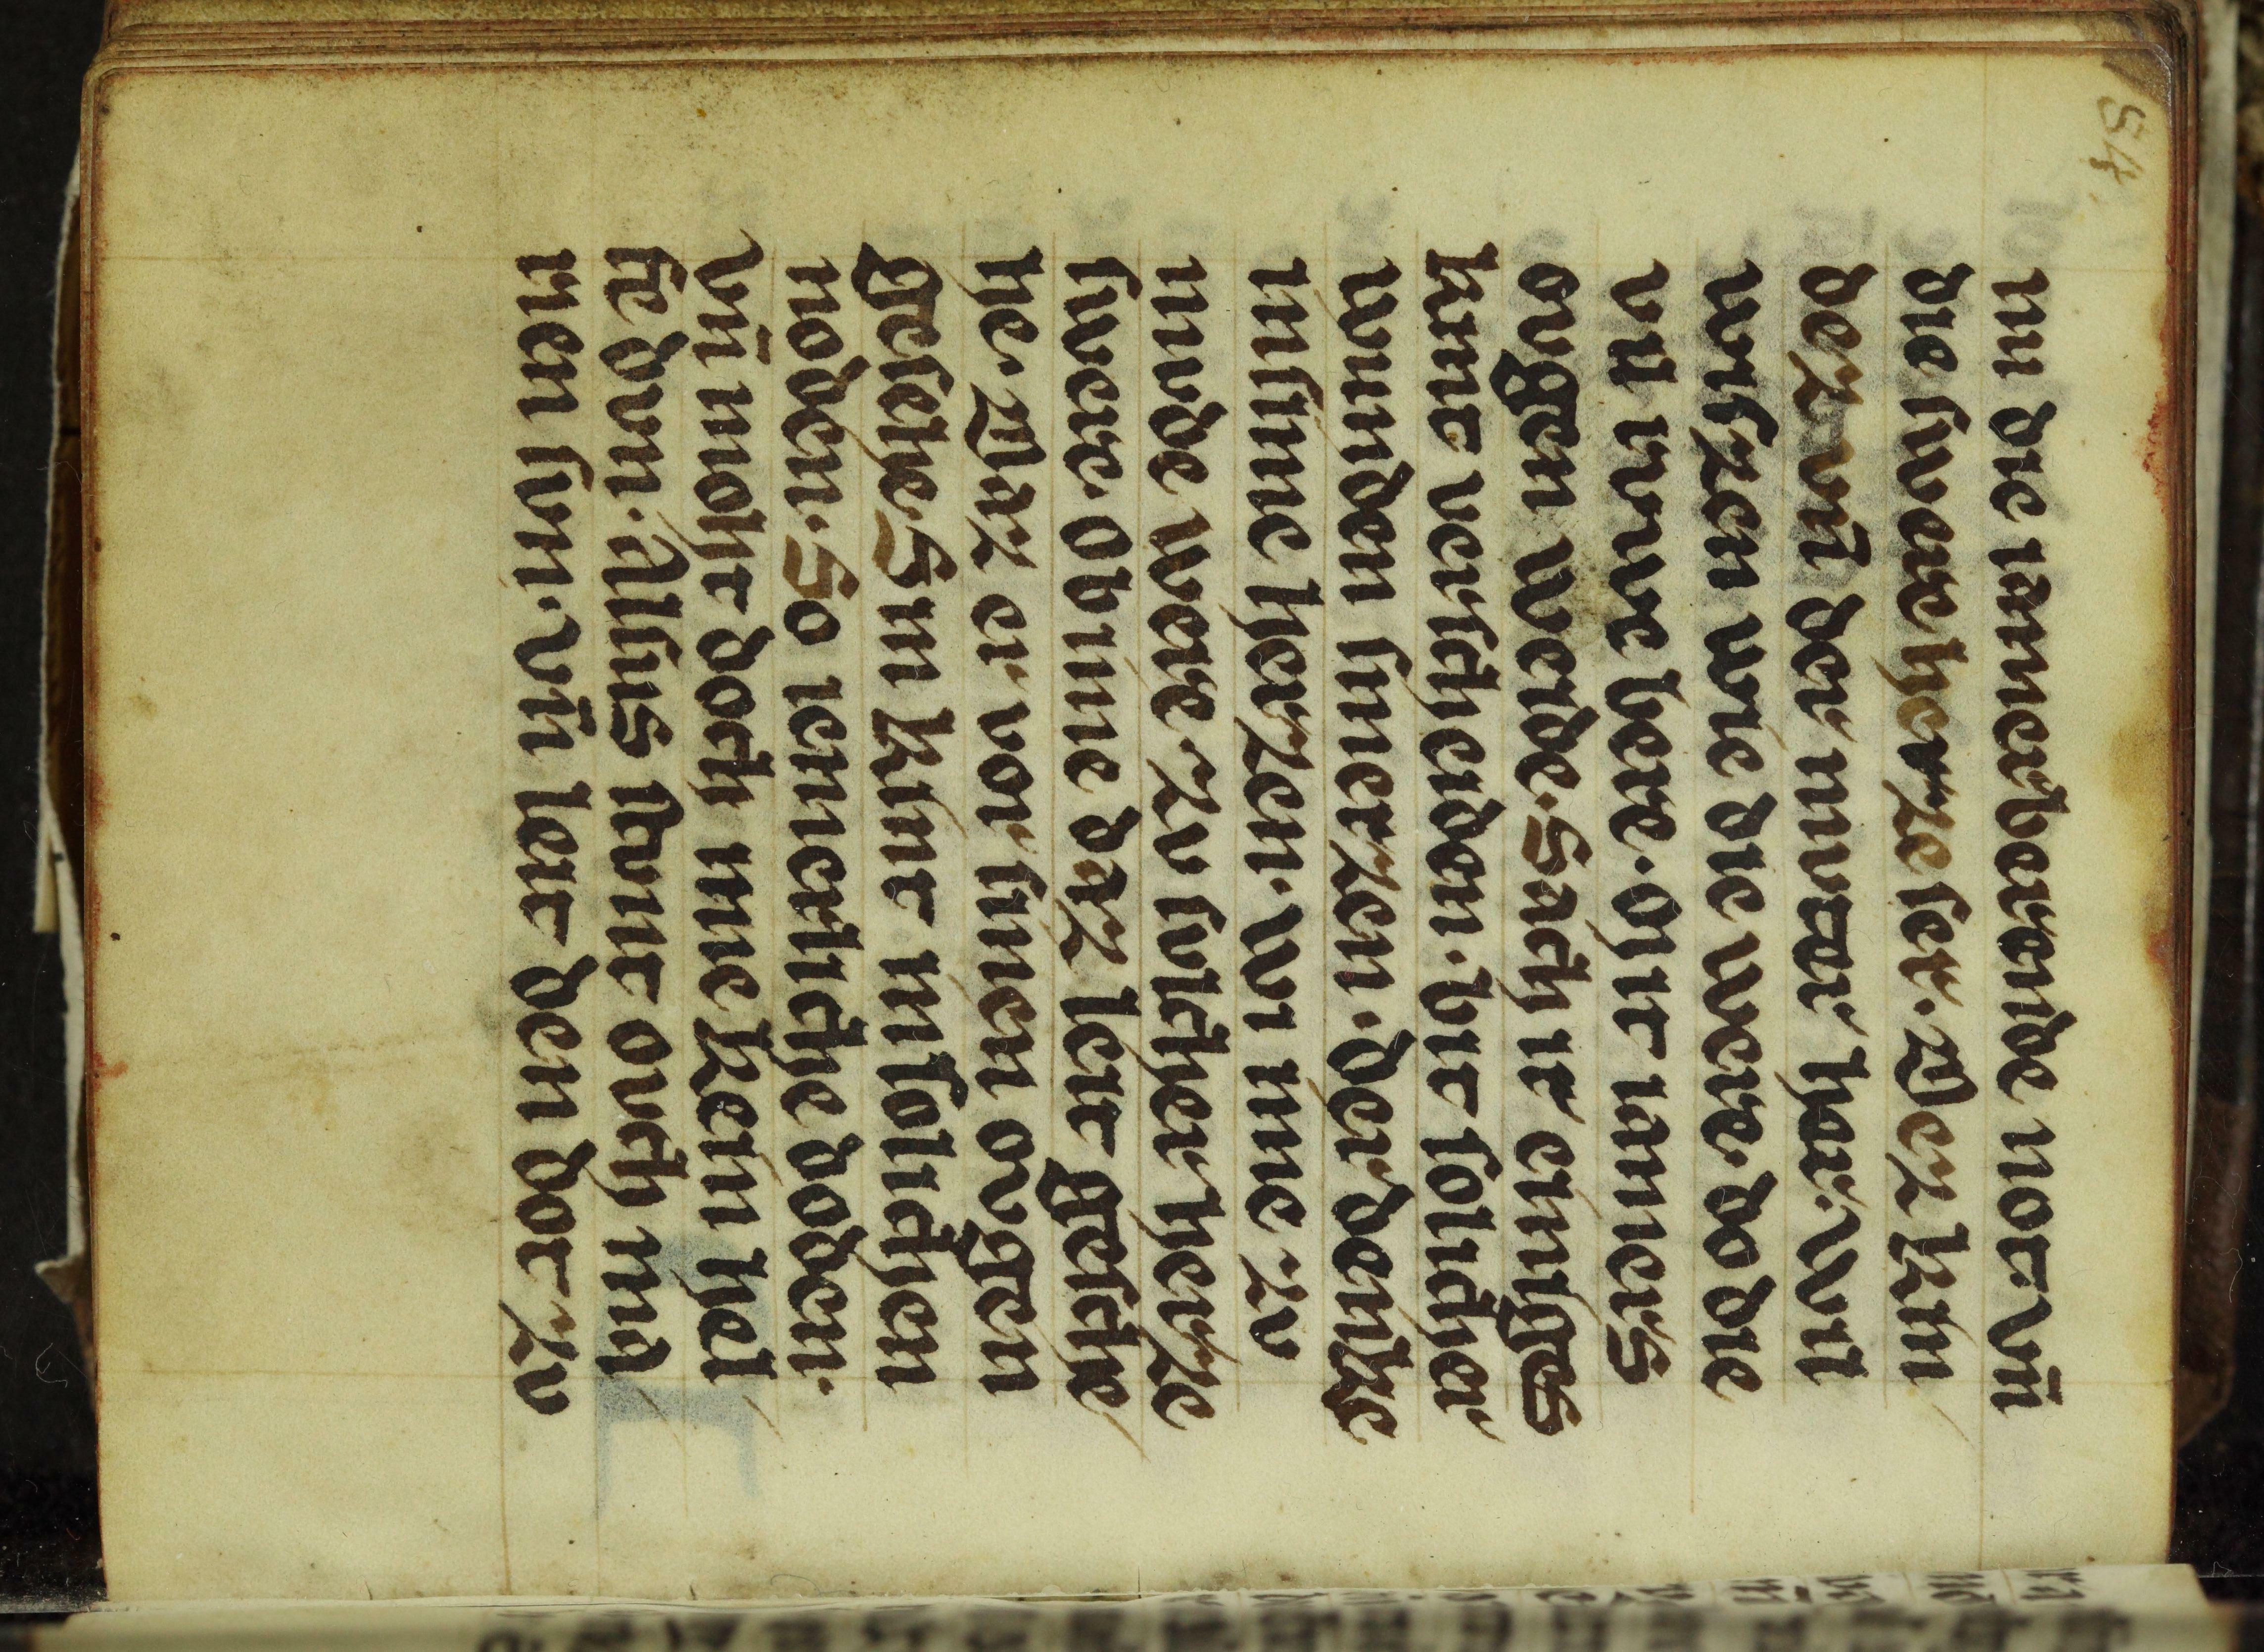 54.
nu die iamerberende not. vn̄
die swere herzeser. Dez kin
dez vn̄ der mvter har. Wil
wiszen wie die were. do die
vil ruwe bere. iamers
ovgen weide. Sach ir einiges
kint verscheiden. bit solicher
wunden smerzen. der denke
in sime herzen. wi ime zv
mvde were. zv solicher herze
swere. obime daz leit gesche
he. Daz er vor sinen ovgen
gesehe. Sin kint in solichen
noden. So iemerliche doden.
vn̄ moht doch ime kein hel
fe dvn. Alsus stvnt ovch ma
rien svn. vn̄ leit den dot zv